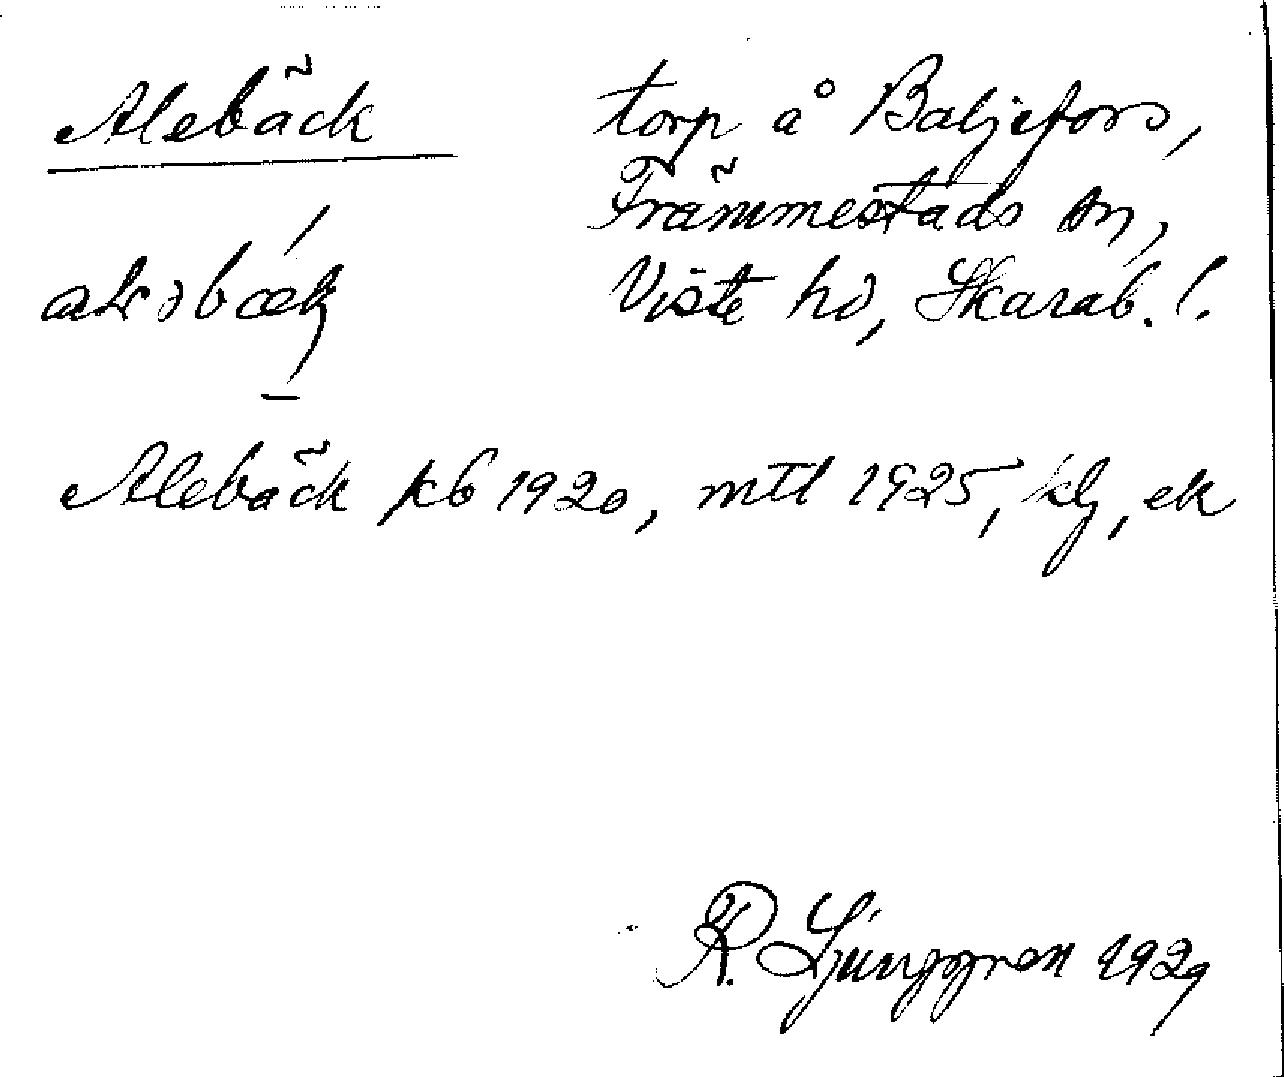 Alebäck torp å Baljefors,
Främmestads sn,
Viste hd, Skarab. l.
Alebäck kb 1920, mtl 1925, klj, ek
R. Ljunggren 1929